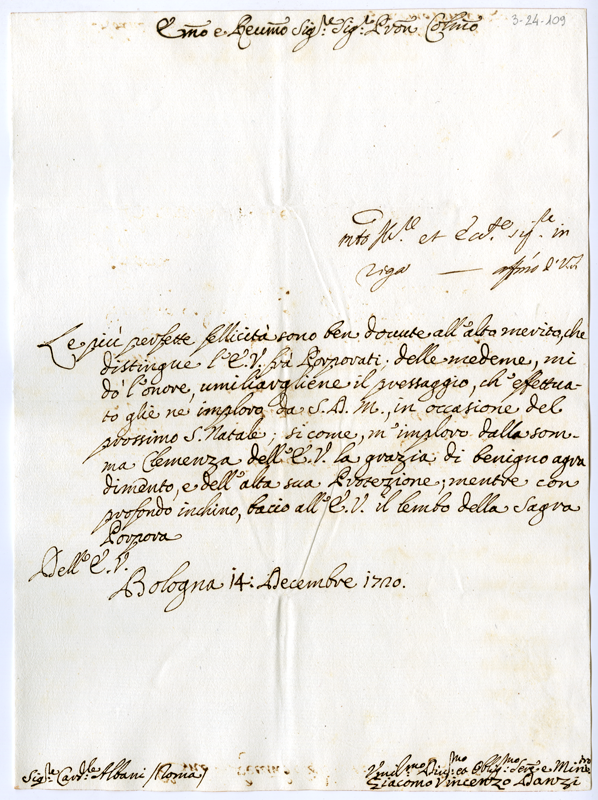 3-24-109
E.mo e Reu.mo Sig.re Sig.re Pron Col.mo
m.to Ill.re et Ecc.te sig.re in
riga — aff.mo d. V.S.
Le più perfette fellicità sono ben douute all'alto merito, che
distingue l'E.V. frà Porporati; delle medeme, mi
dò l'onore, umiliargliene il pressaggio, ch'effettua-
to glie ne imploro da S.D.M., in occasione del
prossimo S. Natale; si come, m'imploro dalla som-
ma Clemenza dell'E.V. la grazia, di benigno agra
dimento, e dell'alta sua Protezione; mentre con
profondo inchino, bacio all'E.V. il lembo della Sagra
Porpora
Dell'E.V.
Bologna 14: Decembre 1720.
Sig.re Card.le Albani (Roma)
Vmil.mo Diu.mo et Obblig.mo Ser.e e Min.ro
Giacomo Vincenzo